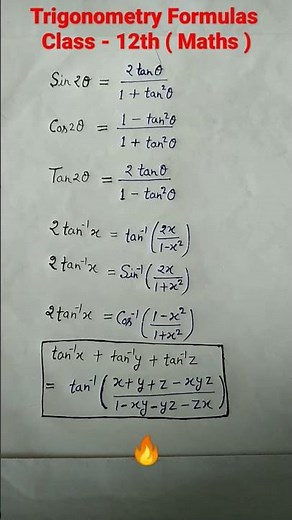 Trigonometry Formulas
Class - 12th ( Maths )
Sin2θ = 2tanθ / 1 + tan²θ
Cos2θ = 1 - tan²θ / 1 + tan²θ
Tan2θ = 2tanθ / 1 - tan²θ
2tan⁻¹x = tan⁻¹(2x / 1-x²)
2tan⁻¹x = Sin⁻¹(2x / 1+x²)
2tan⁻¹x = Cos⁻¹(1-x² / 1+x²)
tan⁻¹x + tan⁻¹y + tan⁻¹z
= tan⁻¹(x+y+z-xyz / 1-xy-yz-zx)